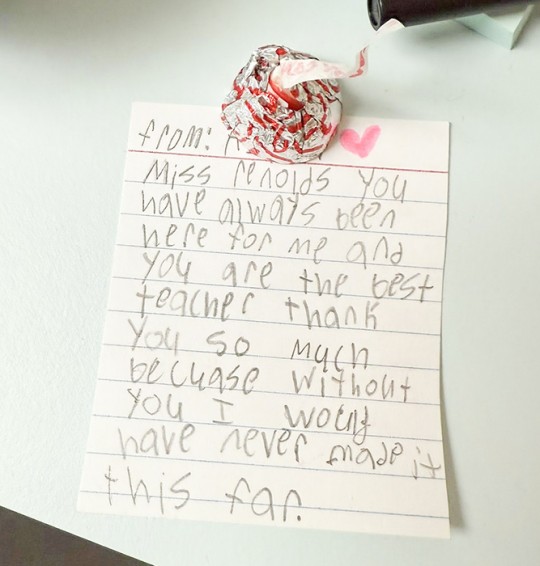 from:
Miss renolds you
have always been
here for me and
you are the best
teacher thank
you so much
becuase without
you I
have never made it
this far.